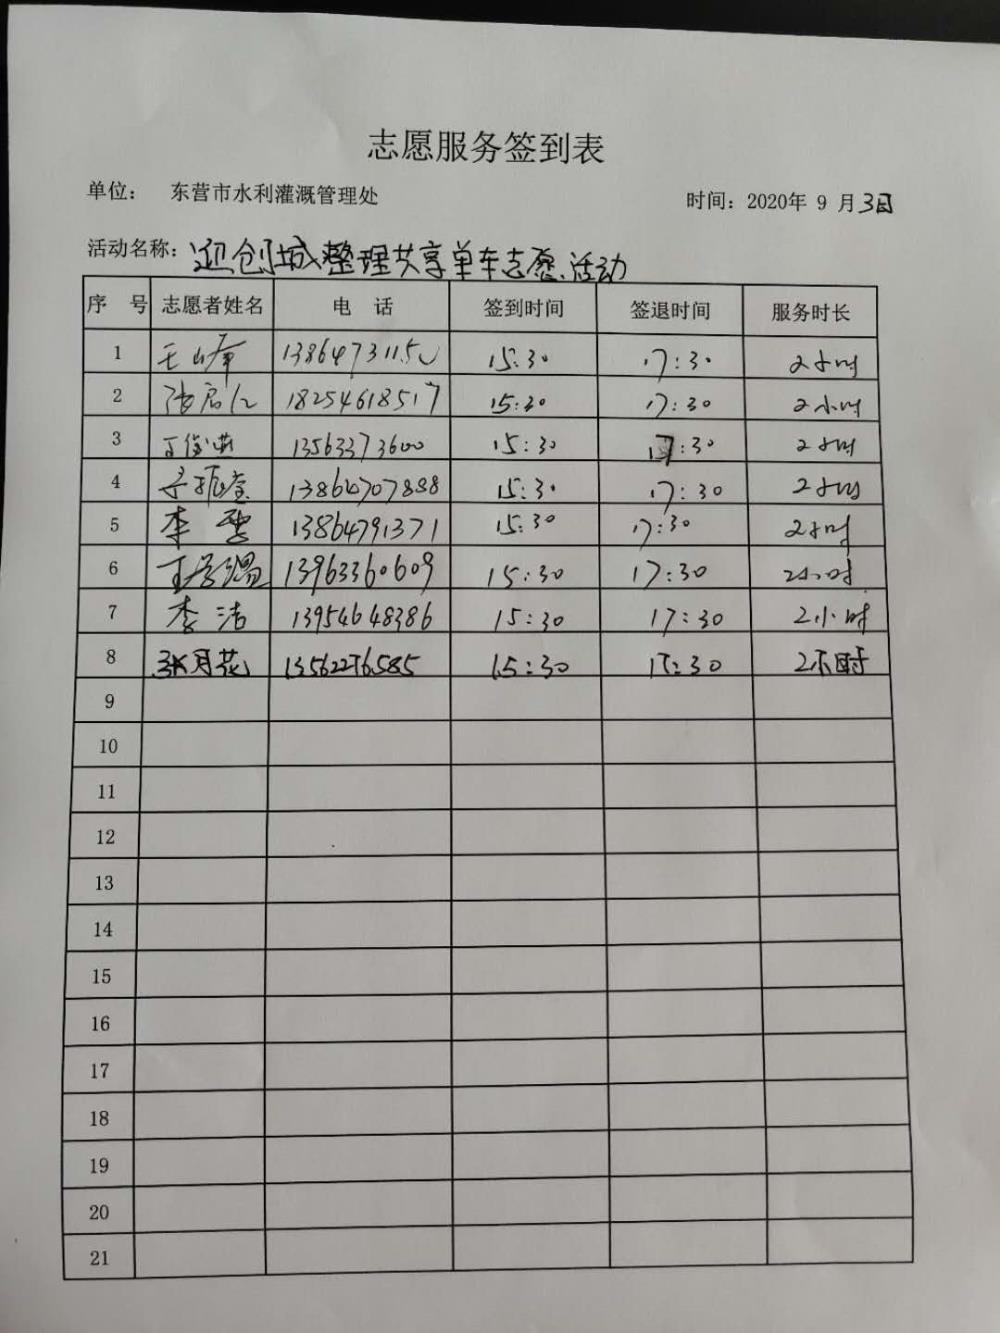 志愿服务签到表
单位： 东营市水利灌溉管理处 时间：2020年 9 月 3日
活动名称：迎创城整理共享单车志愿活动
序 号 志愿者姓名 电 话 签到时间 签退时间 服务时长
1 15:30 17:30 2小时
2 18254618517 15:30 17:30 2小时
3 13563373600 15:30 17:30 2小时
4 13864707888 15:30 17:30 2小时
5 李 13864791371 15:30 17:30 2小时
6 13963360609 15:30 17:30 2小时
7 李洁 13954648386 15:30 17:30 2小时
8 张月花 13562276585 15:30 17:30 2小时
9
10
11
12
13
14
15
16
17
18
19
20
21